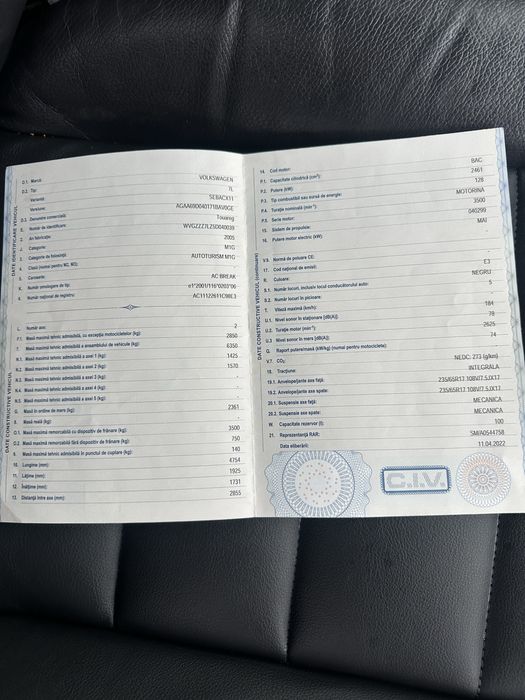 DATE IDENTIFICARE VEHICUL
D.1. Marcă VOLKSWAGEN
D.2. Tip: 7L
Variantă: SEBACX11
Versiune:
D.3. Denumire comercială: Touareg
E. Număr de identificare:
2. An fabricație: 2005
Categorie: M1G
3. Categorie de folosință: AUTOTURISM M1G
4. Clasă (numai pentru M2, M3):
5. Caroserie: AC BREAK
K. Număr omologare de tip: e1*2001/116*0203*06
6. Număr național de registru: AC11122611C98E3
DATE CONSTRUCTIVE VEHICUL
L. Număr axe: 2
F.1. Masă maximă tehnic admisibilă, cu excepția motocicletelor (kg): 2850
7. Masă maximă tehnic admisibilă a ansamblului de vehicule (kg): 6350
N.1. Masă maximă tehnic admisibilă a axei 1 (kg): 1425
N.2. Masă maximă tehnic admisibilă a axei 2 (kg): 1570
N.3. Masă maximă tehnic admisibilă a axei 3 (kg):
N.4. Masă maximă tehnic admisibilă a axei 4 (kg):
N.5. Masă maximă tehnic admisibilă a axei 5 (kg):
G. Masă în ordine de mers (kg): 2361
8. Masă reală (kg):
O.1. Masă maximă remorcabilă cu dispozitiv de frânare (kg): 3500
O.2. Masă maximă remorcabilă fără dispozitiv de frânare (kg): 750
9. Masă maximă tehnic admisibilă în punctul de cuplare (kg): 140
10. Lungime (mm): 4754
11. Lățime (mm): 1925
12. Înălțime (mm): 1731
13. Distanță între axe (mm): 2855
DATE CONSTRUCTIVE VEHICUL (continuare)
14. Cod motor: BAC
P.1. Capacitate cilindrică (cm³): 2461
P.2. Putere (kW): 128
P.3. Tip combustibil sau sursă de energie: MOTORINA
P.4. Turație nominală (min⁻¹): 3500
P.5. Serie motor: 040299
15. Sistem de propulsie: MAI
16. Putere motor electric (kW):
V.9. Normă de poluare CE:
17. Cod național de emisii: E3
R. Culoare: NEGRU
S.1. Număr locuri, inclusiv locul conducătorului auto: 5
S.2. Număr locuri în picioare:
T. Viteză maximă (km/h): 184
U.1. Nivel sonor în staționare [dB(A)]: 78
U.2. Turație motor (min⁻¹): 2625
U.3. Nivel sonor în mers [dB(A)]: 74
Q. Raport putere/masă (kW/kg) (numai pentru motociclete):
V.7. CO₂: NEDC: 273 (g/km)
18. Tracțiune: INTEGRALA
19.1. Anvelope/jante axe față: 235/65R17 108V/7.5JX17
19.2. Anvelope/jante axe spate: 235/65R17 108V/7.5JX17
20.1. Suspensie axe față: MECANICA
20.2. Suspensie axe spate: MECANICA
W. Capacitate rezervor (l): 100
21. Reprezentanță RAR: SM/A0544758
Data eliberării: 11.04.2022
C.I.V.